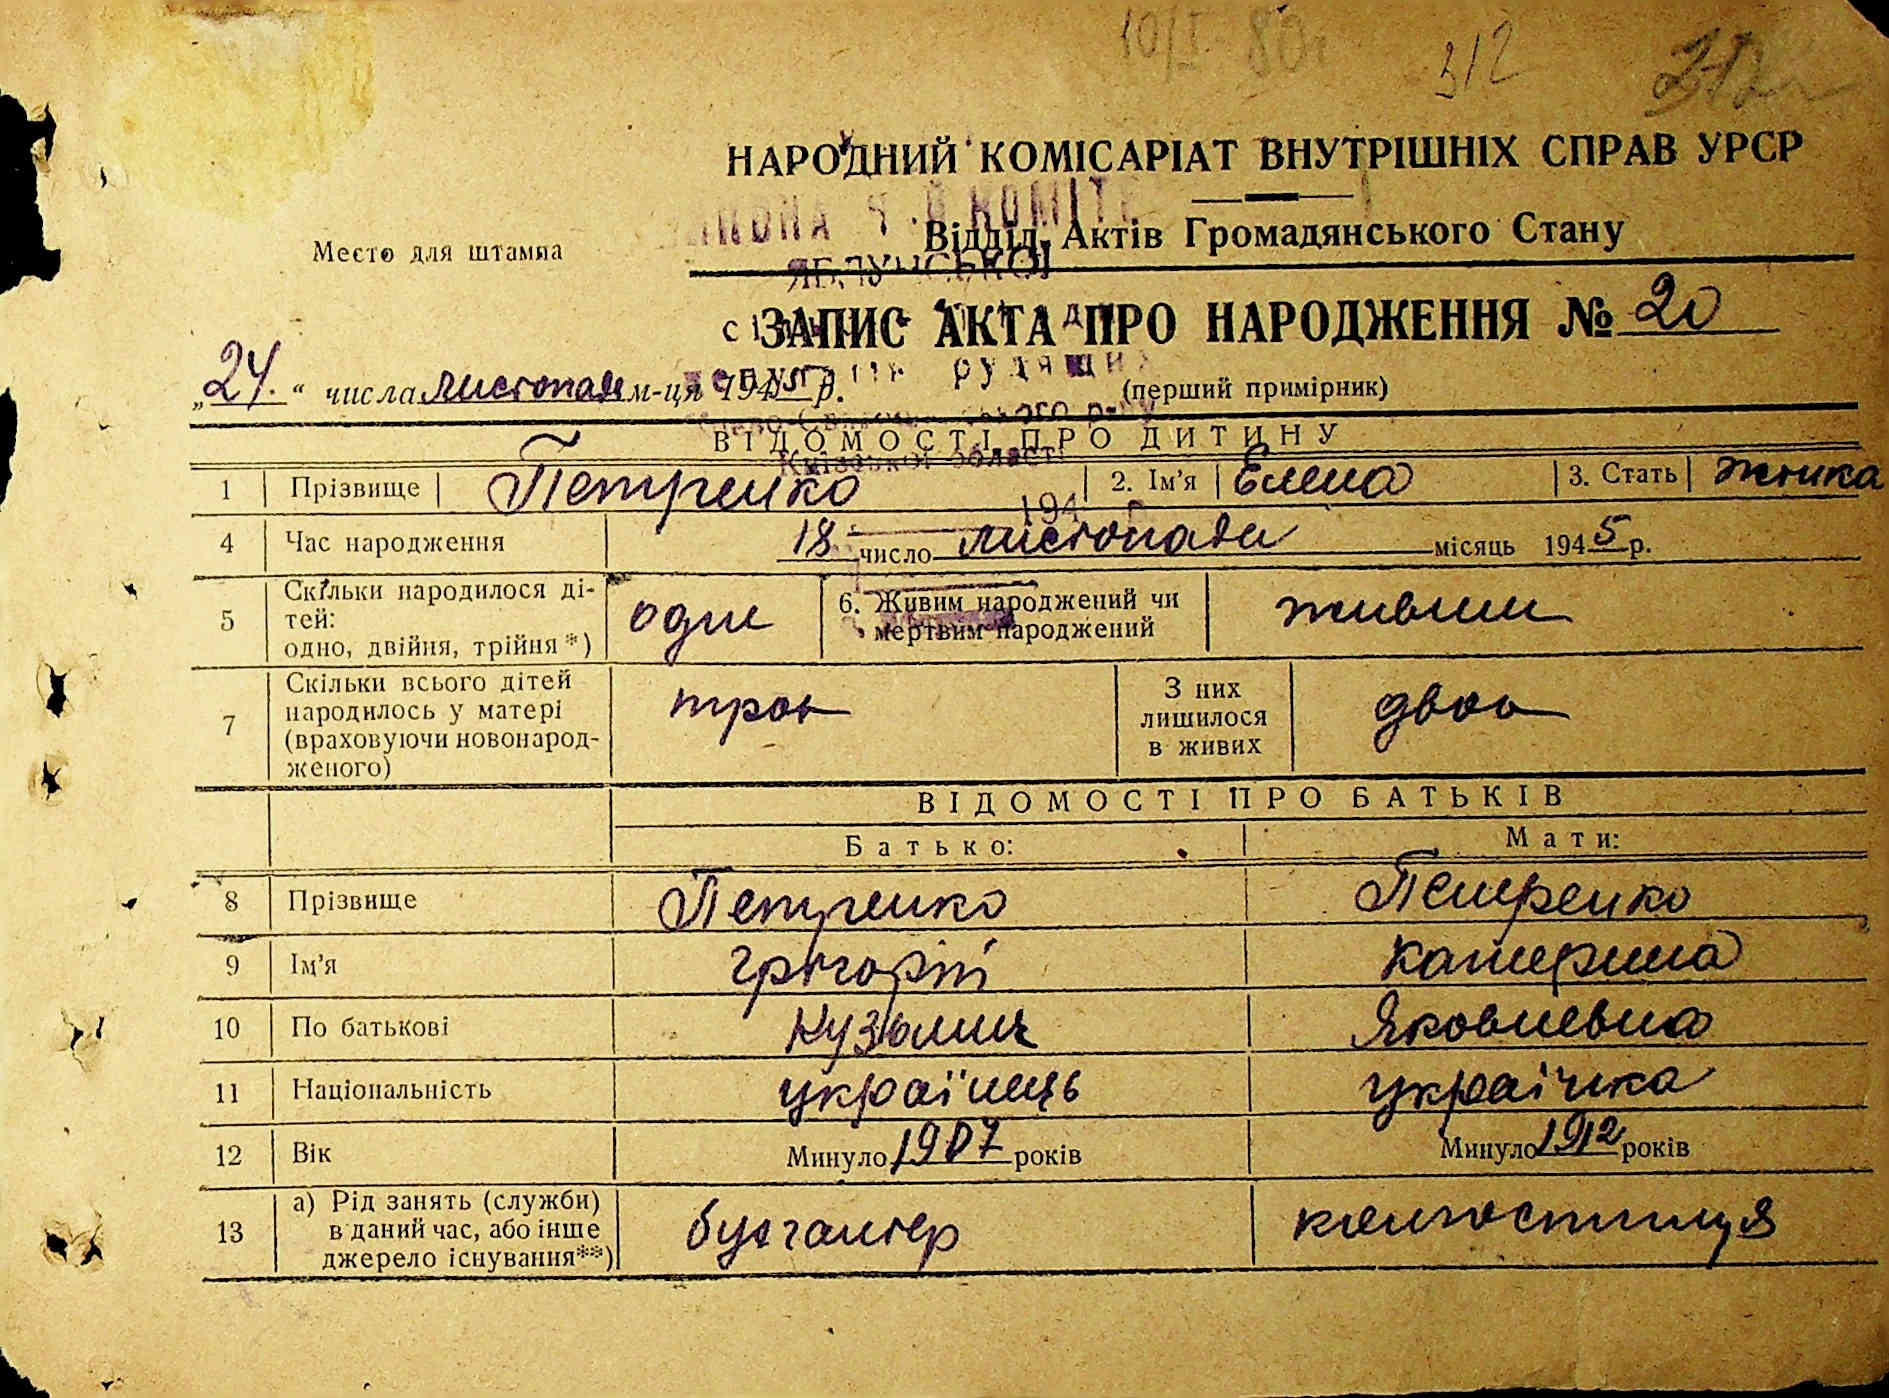 10/I-80г
312
НАРОДНИЙ КОМІСАРІАТ ВНУТРІШНІХ СПРАВ УРСР
Место для штампа
Відділ Актів Громадянського Стану
ЗАПИС АКТА ПРО НАРОДЖЕННЯ № 20
„24.“ числа листопада м-ця 1945 р.
(перший примірник)
ВІДОМОСТІ ПРО ДИТИНУ
1 Прізвище Петренко 2. Ім'я Елена 3. Стать жінка
4 Час народження 18 число листопада місяць 1945 р.
5 Скільки народилося ді-
тей:
одно, двійня, трійня*) одне
6. Живим народжений чи
мертвим народжений живим
7 Скільки всього дітей
народилось у матері
(враховуючи новонарод-
женого) троє
З них
лишилося
в живих двоє
ВІДОМОСТІ ПРО БАТЬКІВ
Батько: Мати:
8 Прізвище Петренко Петренко
9 Ім'я Грігорій Катерина
10 По батькові Кузьмич Яковлевна
11 Національність українець українка
12 Вік Минуло 1907 років Минуло 1912 років
13 а) Рід занять (служби)
в даний час, або інше
джерело існування**) бухгалтер колгоспниця